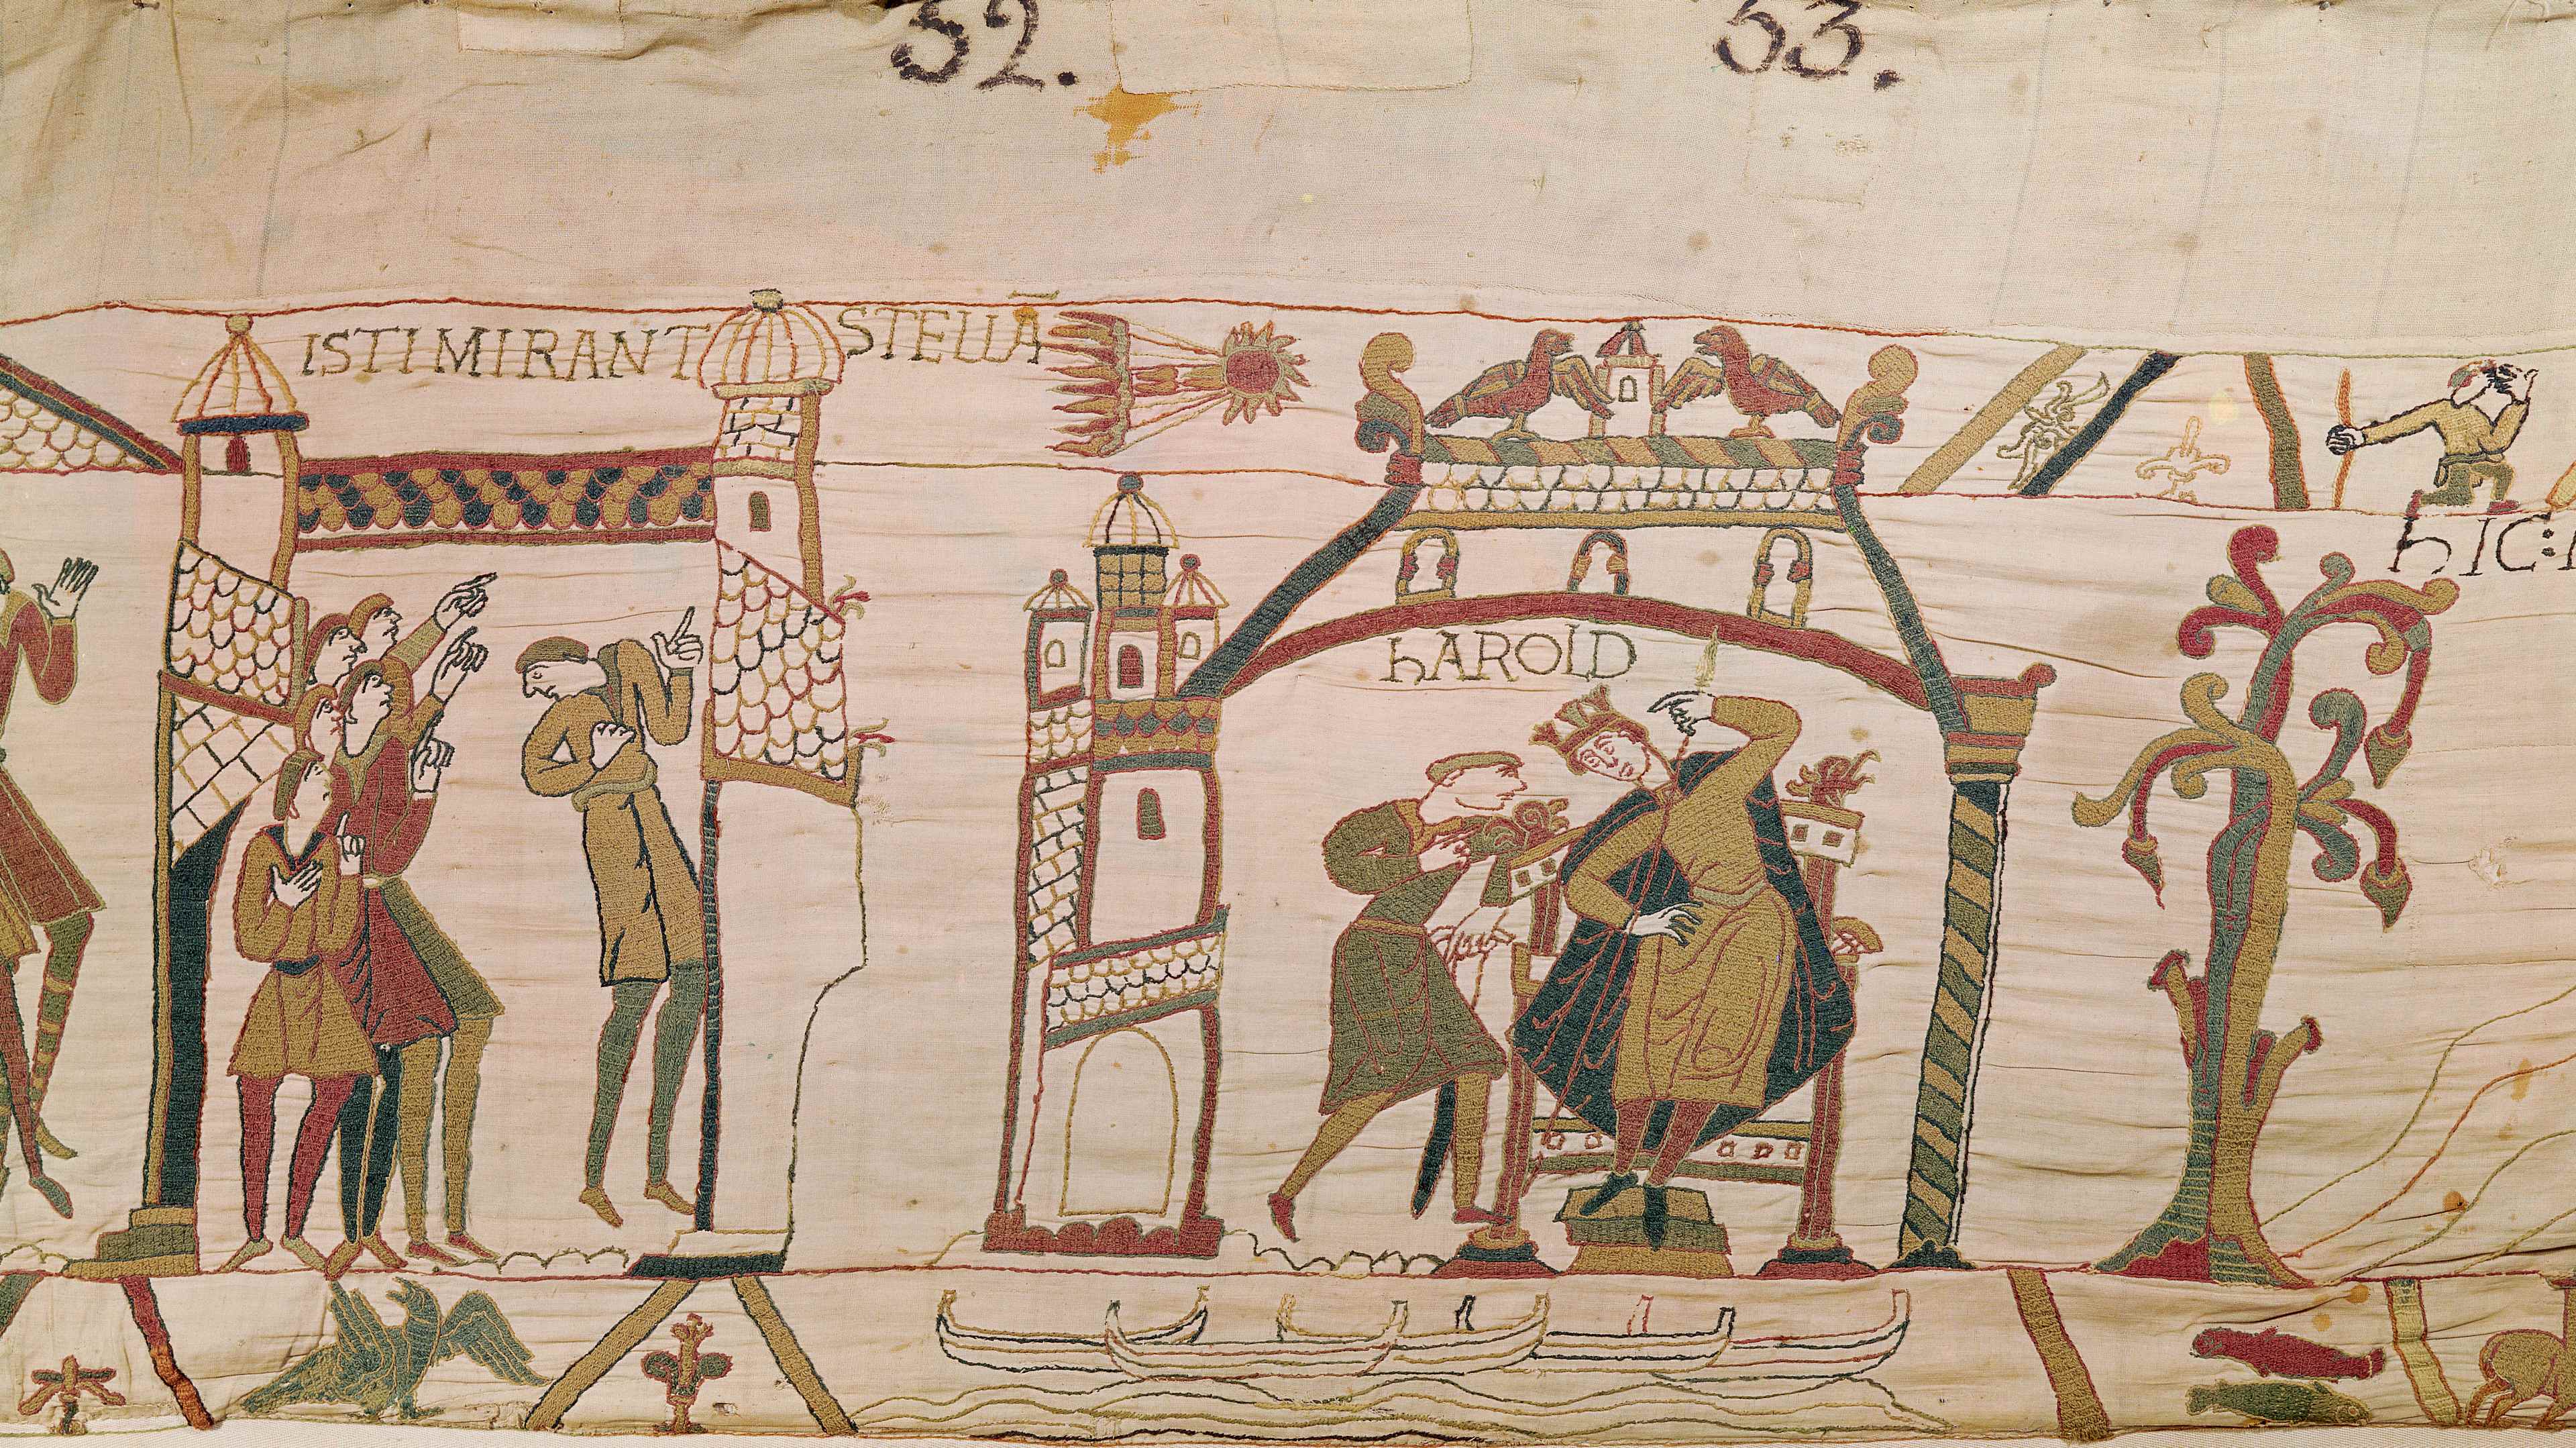 32.
33.
ISTI MIRANT STELLÃ
hAROLD
hIC: